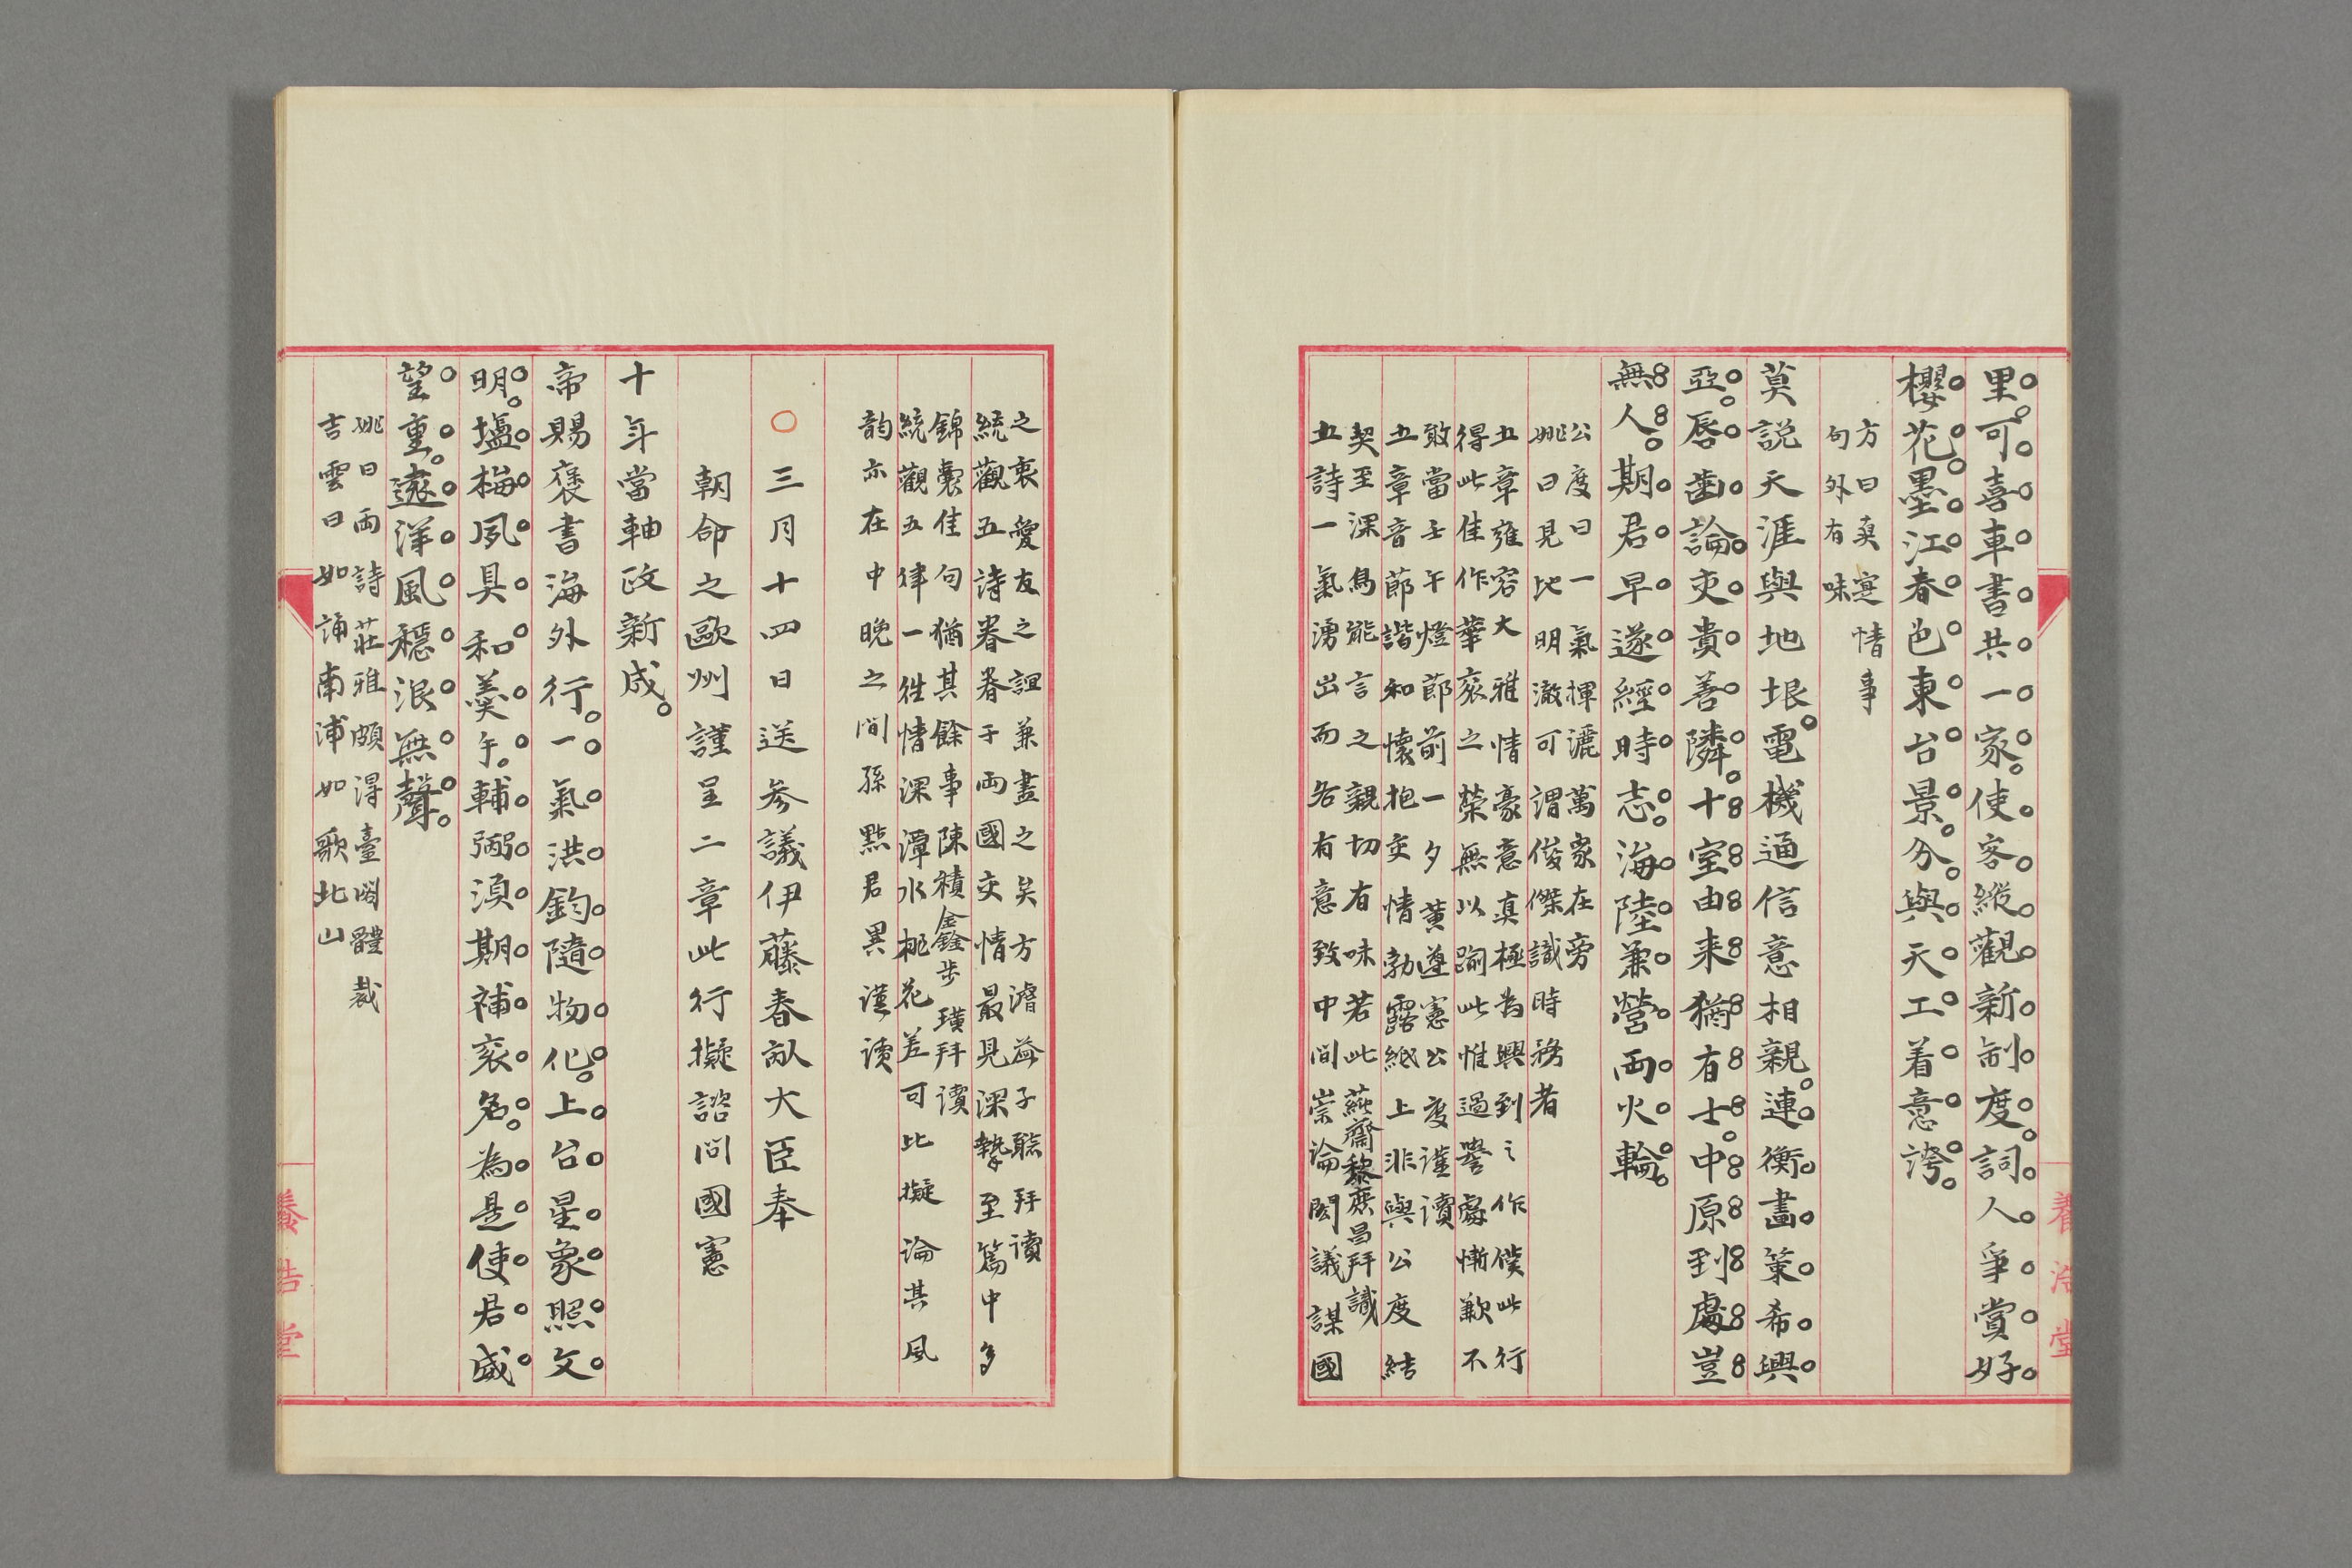 里可喜車書共一家使客縱觀新制度詞人爭賞好
櫻花墨江春色東台景分與天工着意誇
方曰真寔情事
句外有味
莫説天涯與地垠電機通信意相親連衡畫策希興
亞唇齒論交貴善隣十室由来猶有士中原到處豈
無人期君早遂經時志海陸兼營兩火輪
公度曰一氣揮灑萬象在旁
姚曰見比明澈可謂俊傑識時務者
五章雍容大雅情豪意真極為興到之作僕此行
得此佳作華袞之榮無以踰此惟過譽處慚歉不
敢當壬午燈節前一夕黃遵憲公度謹讀
五章音節諧和懷抱交情勃露紙上非與公度結
契至深烏能言之親切有味若此蒓齋黎庶昌拜識
五詩一氣湧出而各有意致中間崇論閎議謀國
之衷愛友之誼兼盡之矣方濬益子聽拜讀
統觀五詩眷眷于兩國交情最見深摯至篤中多
錦囊佳句猶其餘事陳積鑫步璜拜讀
統觀五律一往情深潭水桃花差可比擬論其風
韵亦在中晚之間孫點君異謹讀
○三月十四日送參議伊藤春畝大臣奉
朝命之歐州謹呈二章此行擬諮問國憲
十年當軸政新成
帝賜褒書海外行一氣洪鈞隨物化上台星象照文
明塩梅夙具和羹手輔弼湏期補袞名為是使君威
望重遠洋風穩浪無聲
姚曰兩詩莊雅頗得臺閣體裁
吉雲曰如誦南浦如歌北山
養浩堂
養浩堂